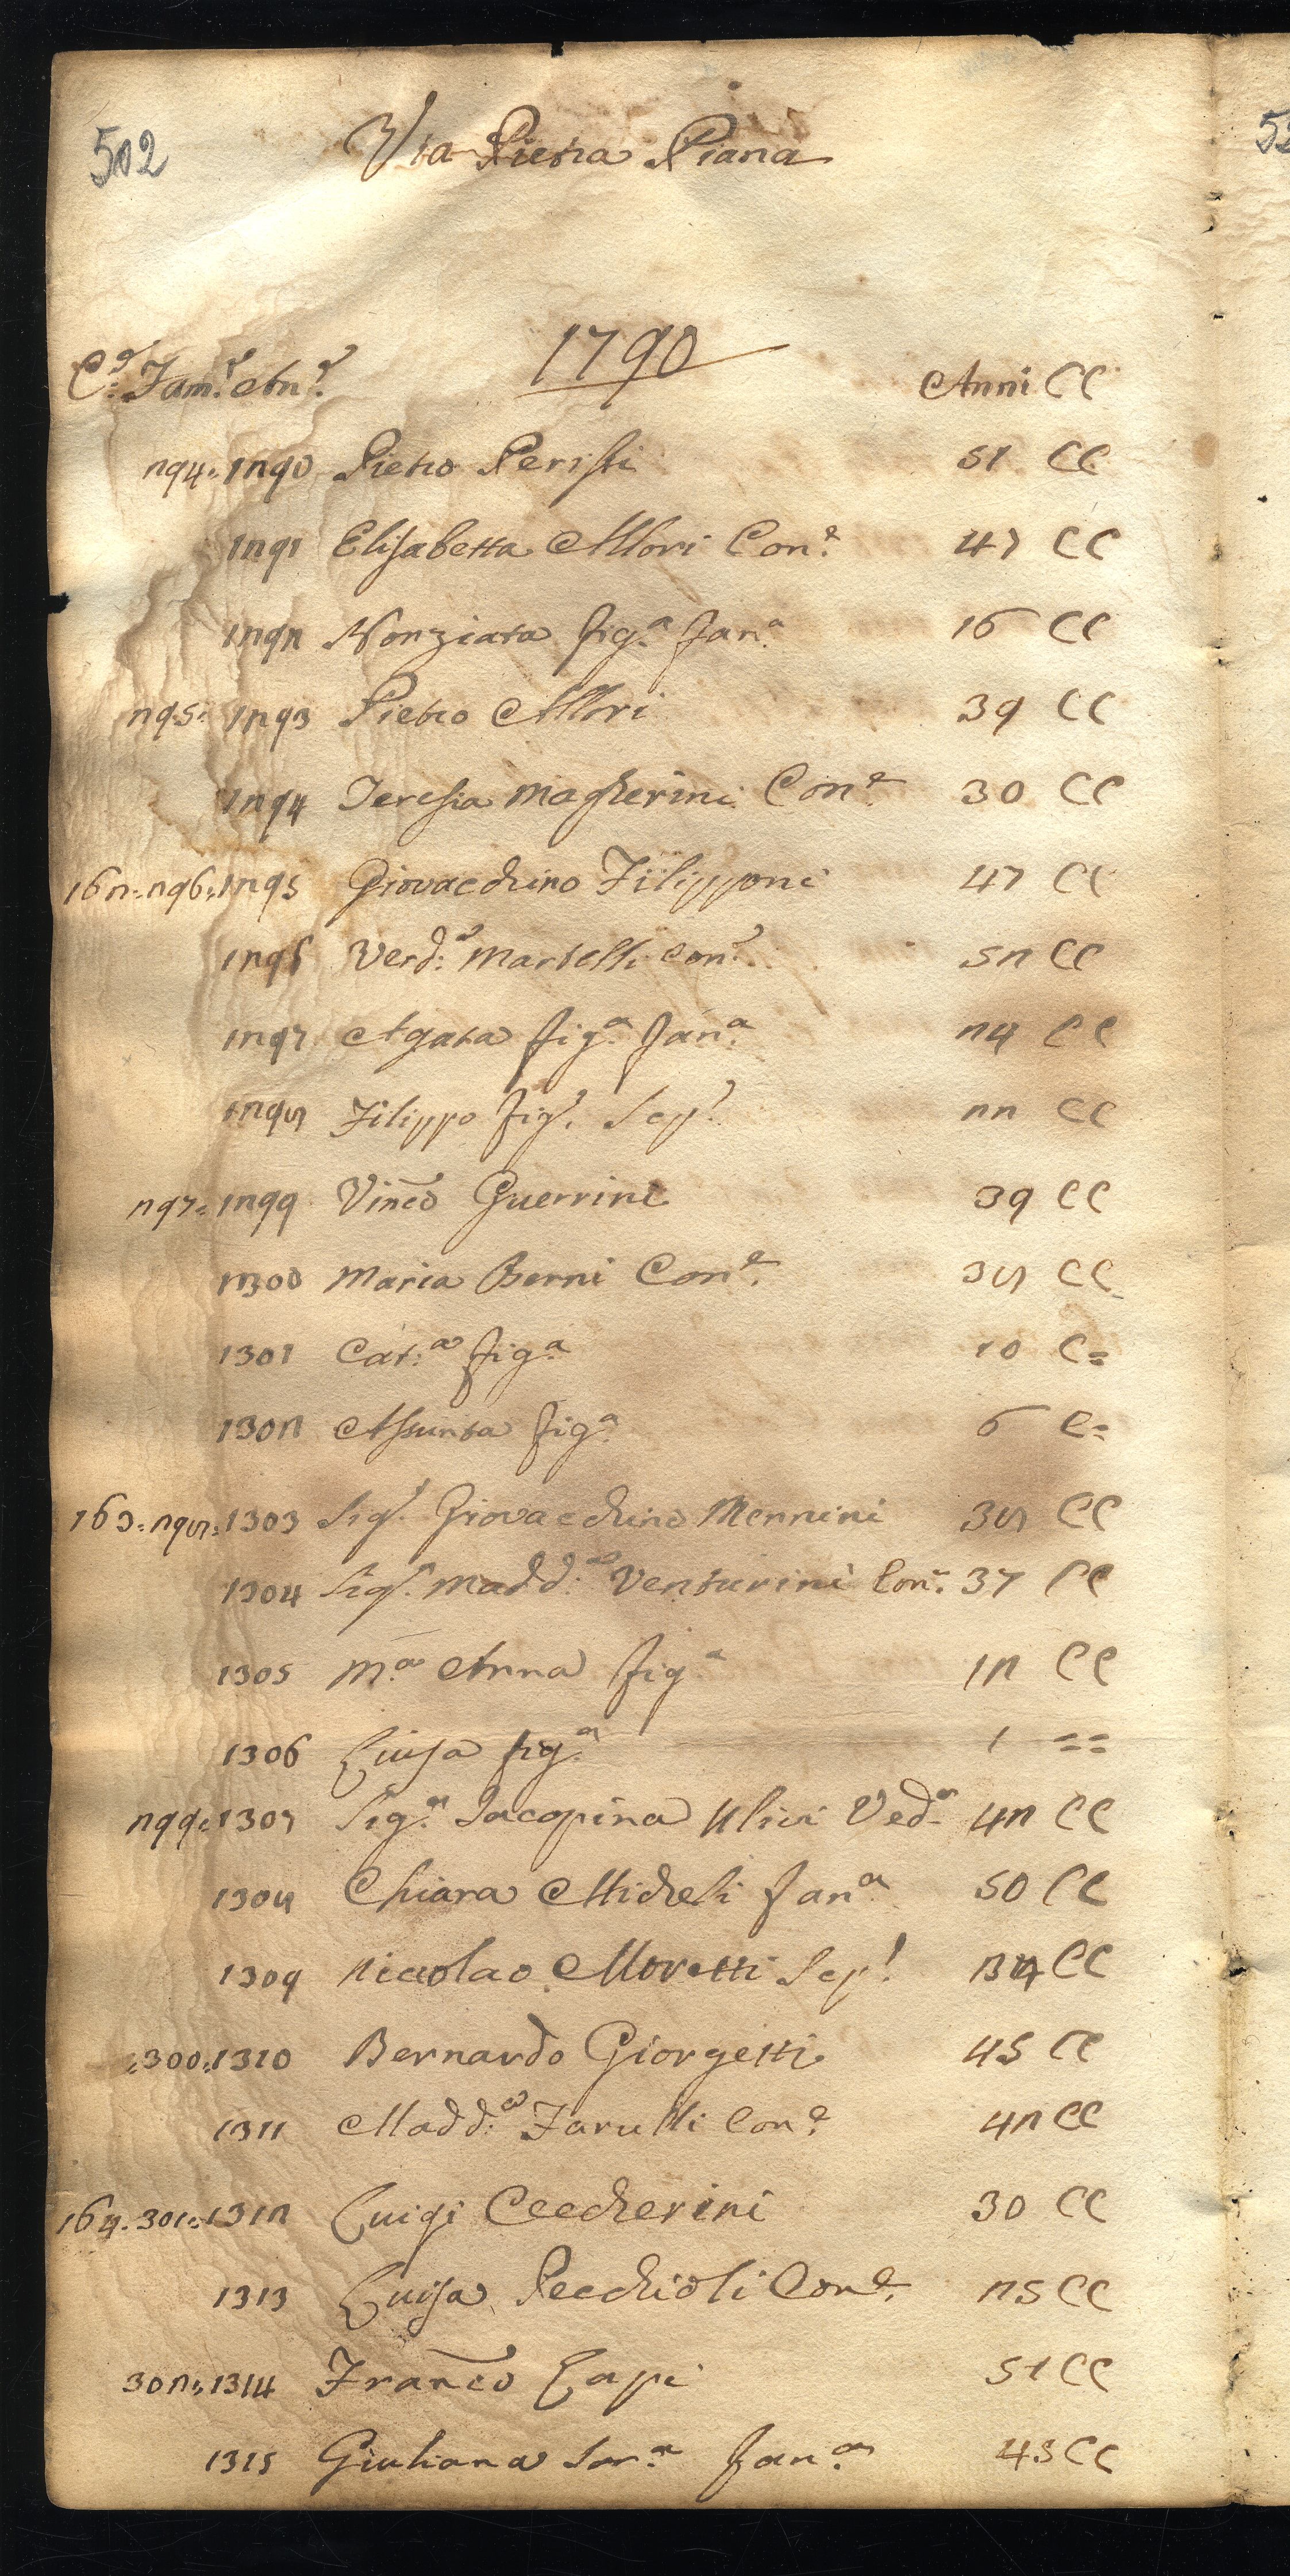 502 Via Pietra Piana
1790
C.e Fam.e An.e Anni CC
294. 1290 Pietro Peristi 51 CC
1291 Elisabetta Allori Con.e 47 CC
1292 Nonziata fig.a fan.a 16 CC
295. 1293 Pietro Allori 39 CC
1294 Teresia Magherini Con.e 30 CC
162. 296. 1295 Giovacchino Filipponi 47 CC
1296 Verd.a Martelli Con.e 52 CC
1297 Agata fig.a fan.a 24 CC
1298 Filippo fig.o Scp.o 22 CC
297. 1299 Vinco Guerrini 39 CC
1300 Maria Berni Con.e 38 CC
1301 Cat.a fig.a 10 C=
1302 Assunta fig.a 6 C=
163. 298. 1303 Sig.r Giovacchino Mennini 38 CC
1304 Sig.ra Madd.a Venturini Con.e 37 CC
1305 M.a Anna fig.a 12 CC
1306 Luisa fig.a 1 ==
299. 1307 Sig.ra Jacopina Ulivi Ved.a 42 CC
1308 Chiara Micheli fan.a 50 CC
1309 Nicolao Moretti Scp.o CC
300. 1310 Bernardo Giorgetti 45 CC
1311 Madd.a Farulli Con.e 42 CC
164. 301. 1312 Luigi Ceccherini 30 CC
1313 Luisa Pecchioli Con.e 25 CC
302. 1314 Franco Lapi 51 CC
1315 Giuliana Sor.a fan.a 43 CC